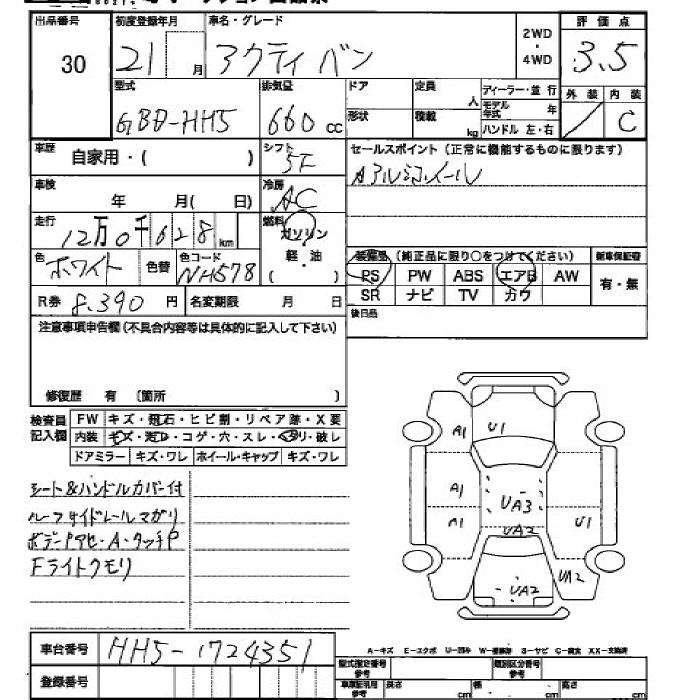 出品番号 初度登録年月 車名・グレード 2WD・4WD 評価点
30 21 月 アクティ バン 3.5
型式 排気量 ドア 定員 人 ディーラー・並行 外装 内装
GBD-HH5 660 cc 形状 積載 kg モデル年式 年 C
ハンドル 左・右
車歴 自家用・( ) シフト 5F セールスポイント(正常に機能するものに限ります)
車検 年 月( 日) 冷房 AC Aアルミホイール
走行 12万0千628 km 燃料 ガソリン
色 ホワイト 色替 色コード NH578 軽・油 ( )
装備品(純正品に限り○をつけてください) 新車保証書
PS PW ABS エアB AW 有・無
SR ナビ TV カワ
R券 8,390 円 名変期限 月 日 後日品
注意事項申告欄(不具合内容等は具体的に記入して下さい)
修復歴 有 (箇所 )
検査員記入欄 FW キズ・飛石・ヒビ割・リペア跡・X要
内装 キズ・汚レ・コゲ・穴・スレ・ ・破レ
ドアミラー キズ・ワレ ホイール・キャップ キズ・ワレ
シート&ハンドルカバー付
ルーフサイドレールマガリ
A・タッチP
Fライトクモリ
A1 U1
A1 UA3
A1 UA2 U1
UA2 UA2
車台番号 HH5-1724351
登録番号
A-キズ E-エクボ U-凹み S-サビ C-腐食 XX-交換済
型式指定番号 参考 類別区分番号 参考
参考 長さ cm 幅 cm 高さ cm